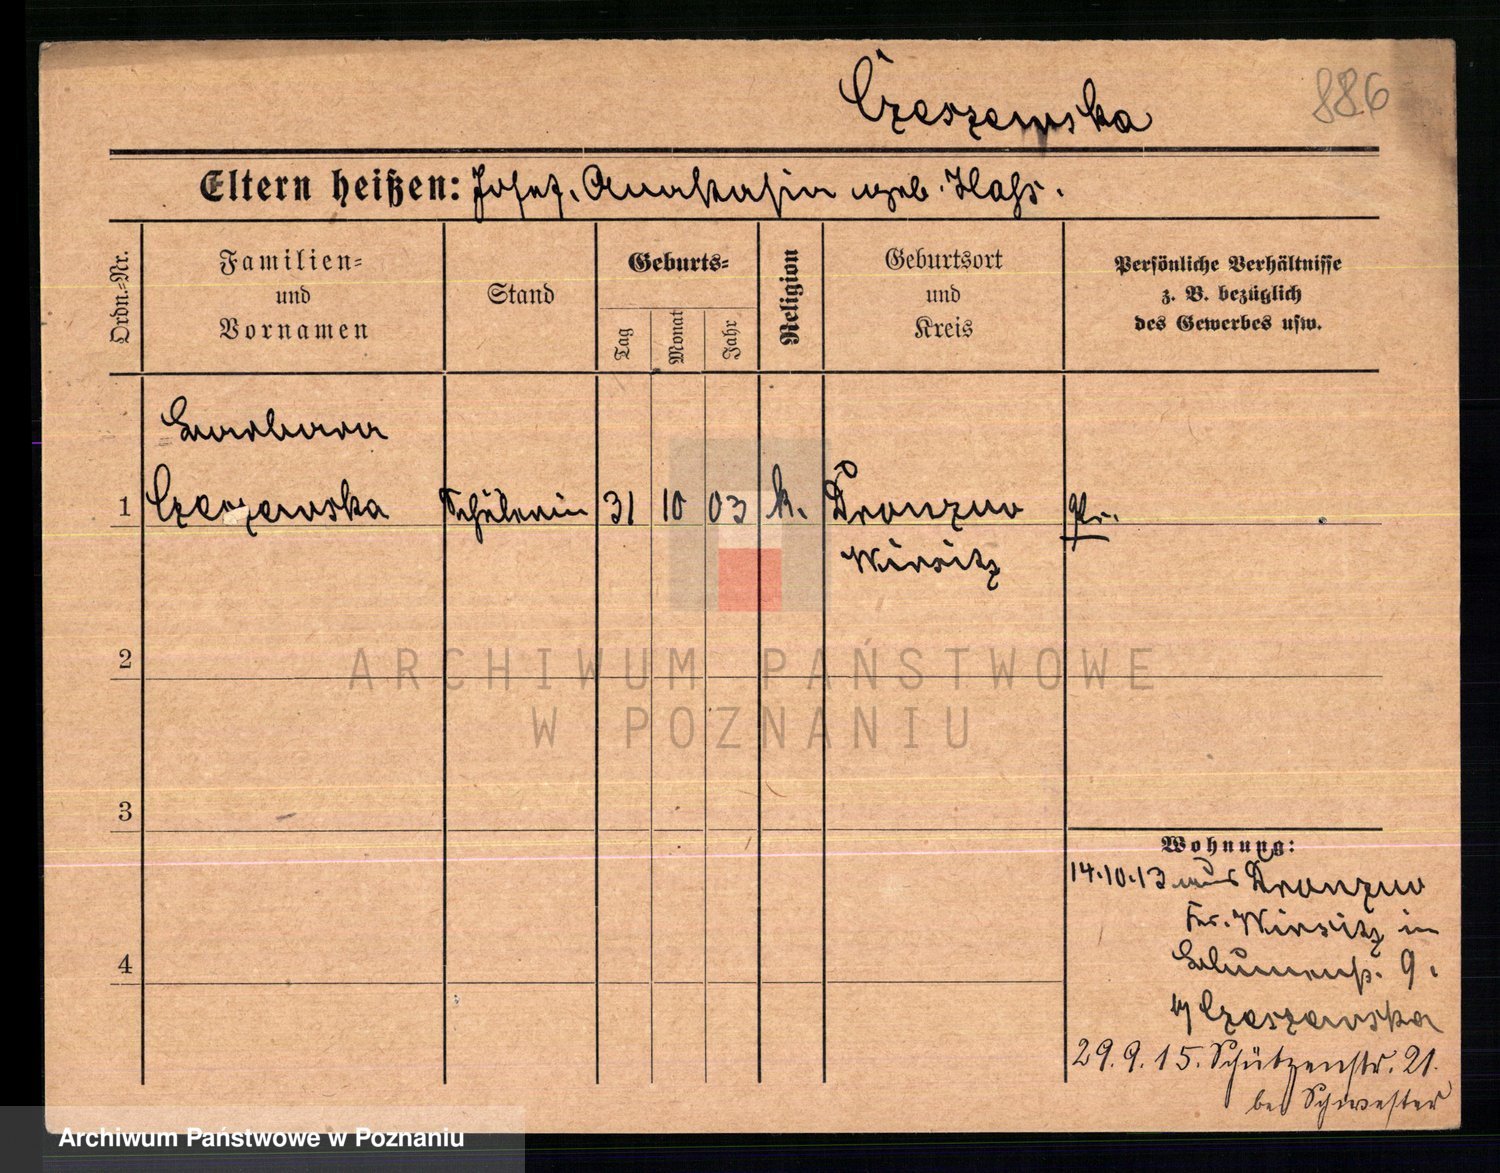 Czeszewska 886
Eltern heißen: Josef, Anastasia geb. Hahs.
Ordn.-Nr.
Familien-
und
Vornamen
Stand
Geburts-
Tag
Monat
Jahr
Religion
Geburtsort
und
Kreis
Persönliche Verhältnisse
z. B. bezüglich
des Gewerbes usw.
Barbara
1 Czeszewska Schülerin 31 10 03 k. Dronzno Pr.
Wirsitz
2
ARCHIWUM PAŃSTWOWE
W POZNANIU
3
Wohnung:
14.10.13 aus Dronzno
Kr. Wirsitz in
4
Blumenstr. 9.
by Czeszewska
29.9.15. Schützenstr. 21.
bei Schwester
Archiwum Państwowe w Poznaniu